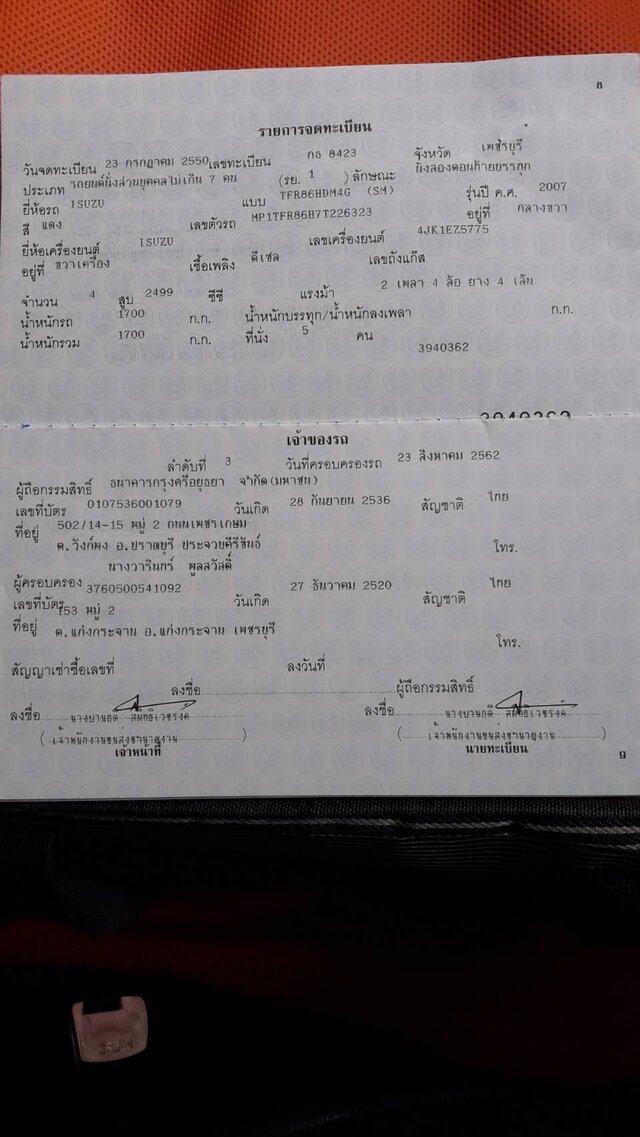 8
รายการจดทะเบียน
วันจดทะเบียน 23 กรกฎาคม 2550 เลขทะเบียน กธ 8423 จังหวัด เพชรบุรี
ประเภท รถยนต์นั่งส่วนบุคคลไม่เกิน 7 คน (รย. 1 ) ลักษณะ นั่งสองตอนท้ายบรรทุก
ยี่ห้อรถ ISUZU แบบ TFR86HDM4G (SM) รุ่นปี ค.ศ. 2007
สี แดง เลขตัวรถ MP1TFR86H7T226323 อยู่ที่ กลางขวา
ยี่ห้อเครื่องยนต์ ISUZU เลขเครื่องยนต์ 4JK1EZ5775
อยู่ที่ ขวาเครื่อง เชื้อเพลิง ดีเซล เลขถังแก๊ส
จำนวน 4 สูบ 2499 ซีซี แรงม้า 2 เพลา 4 ล้อ ยาง 4 เส้น
น้ำหนักรถ 1700 ก.ก. น้ำหนักบรรทุก/น้ำหนักลงเพลา ก.ก.
น้ำหนักรวม 1700 ก.ก. ที่นั่ง 5 คน
3940362
3940362
เจ้าของรถ
ลำดับที่ 3 วันที่ครอบครองรถ 23 สิงหาคม 2562
ผู้ถือกรรมสิทธิ์ ธนาคารกรุงศรีอยุธยา จำกัด(มหาชน)
เลขที่บัตร 0107536001079 วันเกิด 28 กันยายน 2536 สัญชาติ ไทย
ที่อยู่ 502/14-15 หมู่ 2 ถนนเพชรเกษม
ต.วังก์พง อ.ปราณบุรี ประจวบคีรีขันธ์ โทร.
ผู้ครอบครอง นางวารินทร์ พูลสวัสดิ์
เลขที่บัตร 3760500541092 วันเกิด 27 ธันวาคม 2520 สัญชาติ ไทย
ที่อยู่ 153 หมู่ 2
ต.แก่งกระจาน อ.แก่งกระจาน เพชรบุรี โทร.
สัญญาเช่าซื้อเลขที่ ลงวันที่
ลงชื่อ ผู้ถือกรรมสิทธิ์
ลงชื่อ ลงชื่อ
(เจ้าพนักงานขนส่งชำนาญงาน) (เจ้าพนักงานขนส่งชำนาญงาน)
เจ้าหน้าที่ นายทะเบียน
9